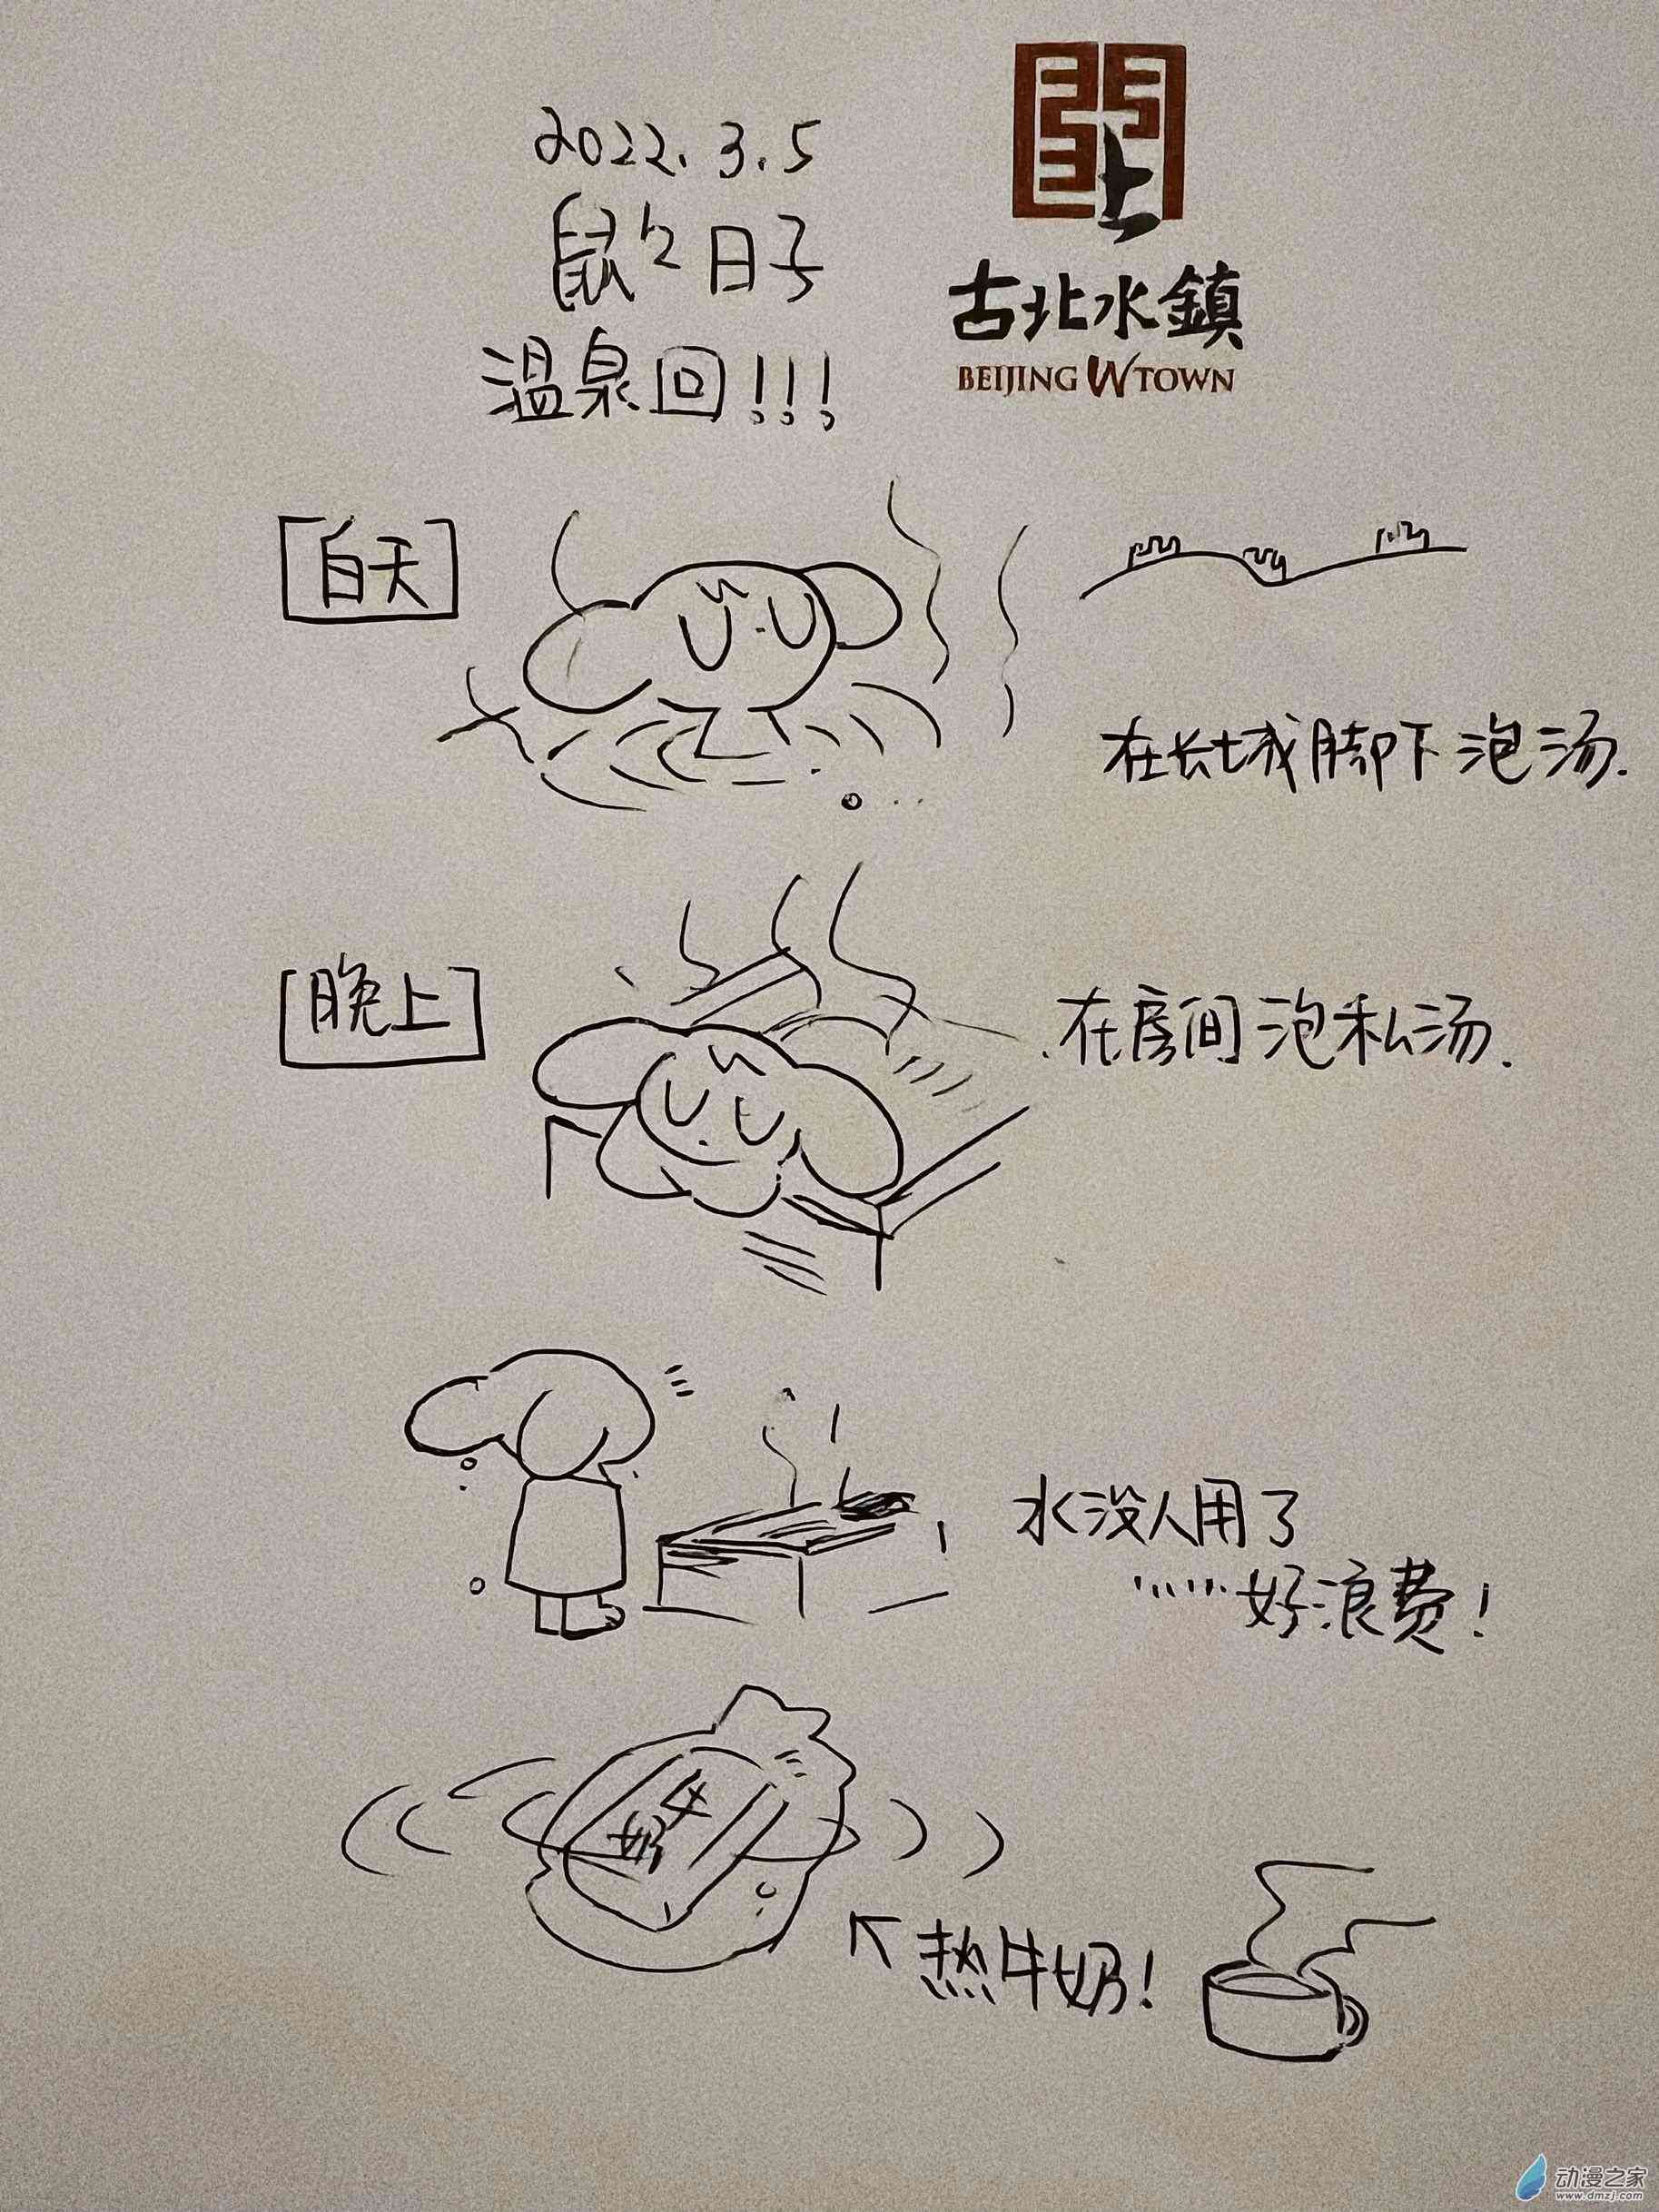 2022.3.5
鼠々日子
温泉回!!!
古北水鎮
BEIJING WTOWN
[白天]
在长城脚下泡汤.
[晚上]
在房间泡私汤.
水没人用了
……好浪费!
牛奶
←热牛奶!
动漫之家
www.dmzj.com